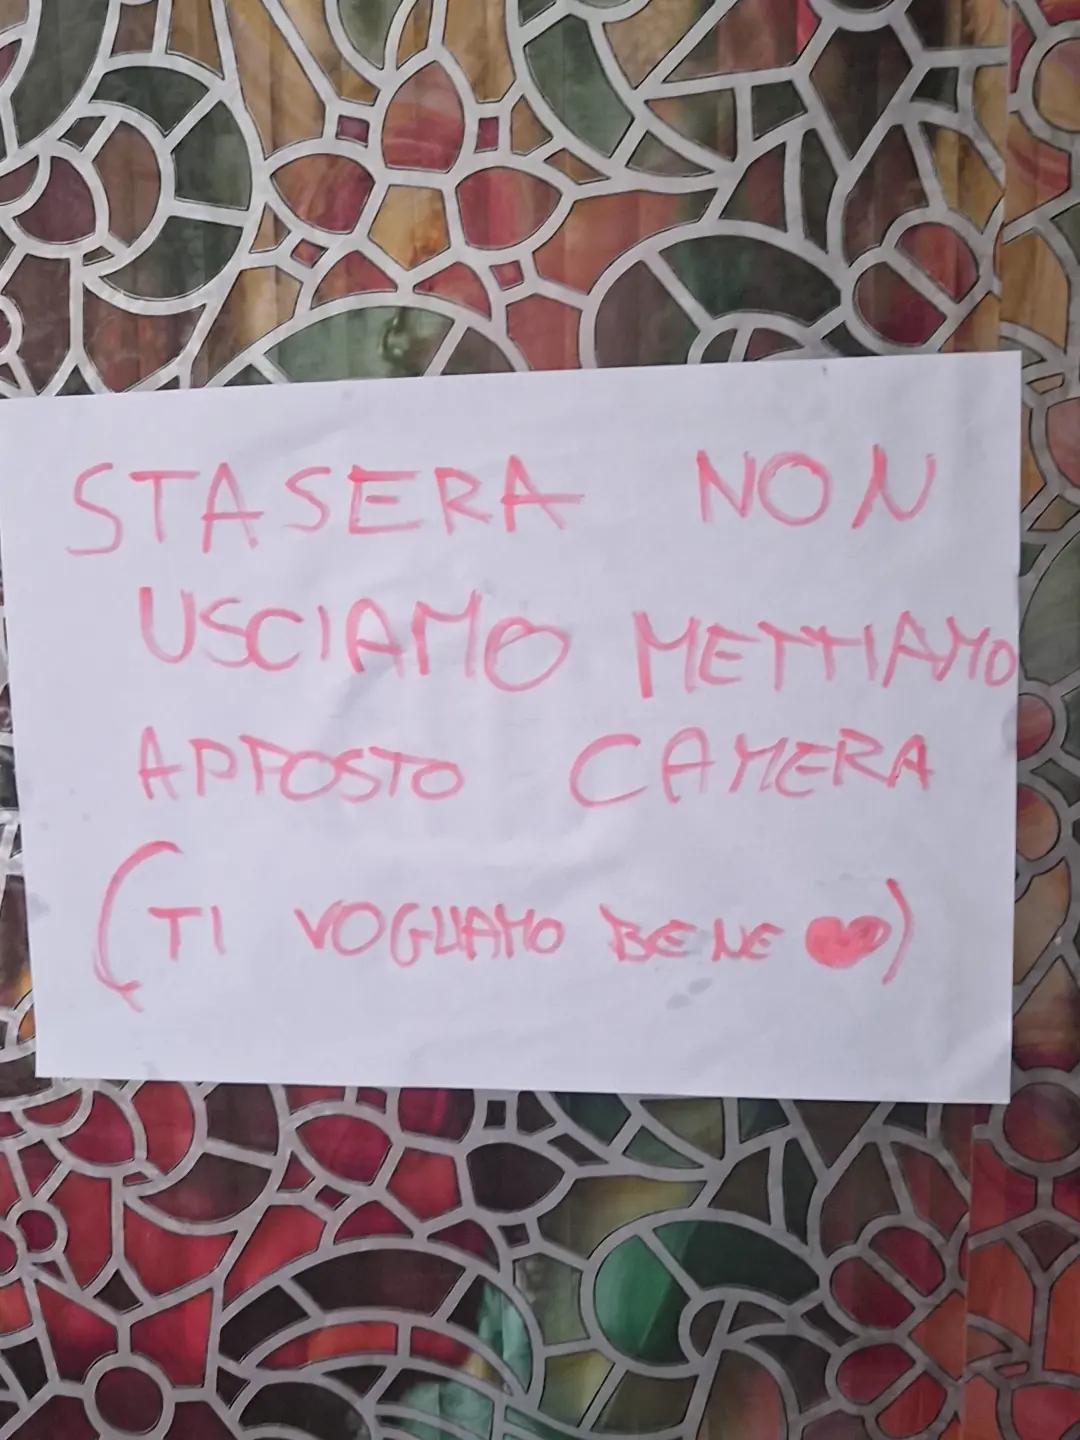 STASERA NON
USCIAMO METTIAMO
APPOSTO CAMERA
(TI VOGLIAMO BENE ❤)